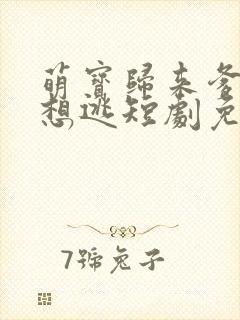 萌寶歸來爹
想逃短劇免
7號兔子